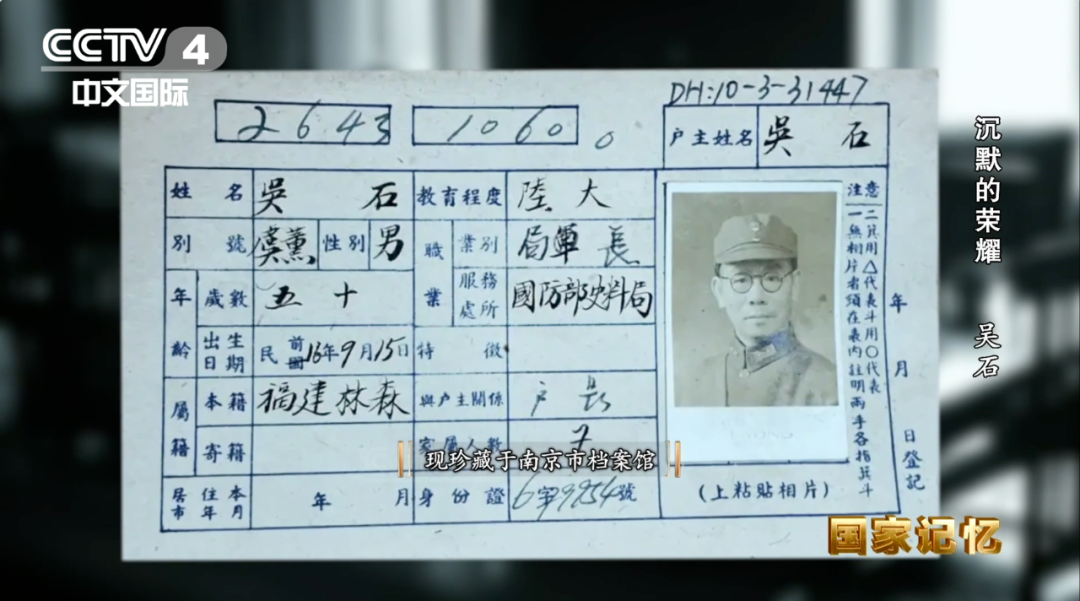 CCTV 4
中文国际
DH:10-3-31447
2643
1060。
户主姓名 吳 石
姓名 吳 石 教育程度 陸大
別號 虞薰 性別 男 職業 業別 局長
年齡 歲數 五十 服務處所 國防部史料局
出生日期 民前國16年9月15日 特徵
屬籍 本籍 福建林森 與户主關係 户長
寄籍 家屬人數 7
居住本市年月 年 月 身份證 6字9954號
注意
一無相片者須在表內註明兩手各指箕斗
二箕用△代表斗用○代表
(上粘貼相片)
年 月 日登記
现珍藏于南京市档案馆
沉默的荣耀 吴石
国家记忆